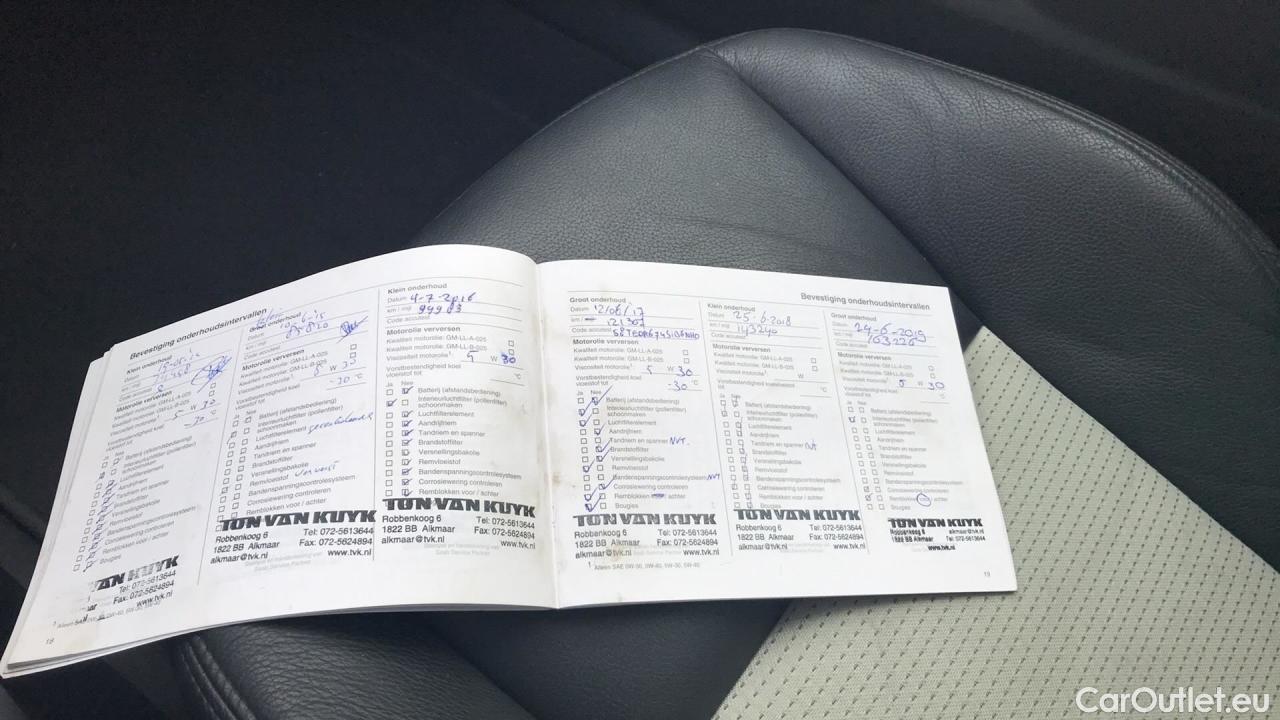 Bevestiging onderhoudsintervallen
Klein onderhoud
Datum
Motorolie verversen
Kwaliteit motorolie: GM-LL-A-025
Kwaliteit motorolie: GM-LL-B-025
Viscositeit motorolie¹:
Batterij (afstandsbediening)
Interieurluchtfilter (pollenfilter)
schoonmaken
Luchtfilterelement
Aandrijfriem
Tandriem en spanner
Brandstoffilter
Versnellingsbakolie
Remvloeistof
Bandenspanningscontrolesysteem
Corrosiewering controleren
Remblokken voor / achter
Bougies
VAN KUYK
Tel: 072-5613644
Fax: 072-5624894
www.tvk.nl
18
Groot onderhoud
Datum
Motorolie verversen
Kwaliteit motorolie: GM-LL-A-025
Kwaliteit motorolie: GM-LL-B-025
Viscositeit motorolie¹:
Vorstbestendigheid koel
vloeistof tot
Batterij (afstandsbediening)
Interieurluchtfilter (pollenfilter)
schoonmaken
Luchtfilterelement
Aandrijfriem
Tandriem en spanner
Brandstoffilter
Versnellingsbakolie
Remvloeistof ververst
Bandenspanningscontrolesysteem
Corrosiewering controleren
Remblokken voor / achter
TON VAN KUYK
Robbenkoog 6
1822 BB Alkmaar
alkmaar@tvk.nl
Klein onderhoud
Datum 4-7-2016
km / mijl 99983
Code accutest
Motorolie verversen
Kwaliteit motorolie: GM-LL-A-025
Kwaliteit motorolie: GM-LL-B-025
Viscositeit motorolie¹: 5 W 30
Vorstbestendigheid koel
vloeistof tot °C
Ja Nee
Batterij (afstandsbediening)
Interieurluchtfilter (pollenfilter)
schoonmaken
Luchtfilterelement
Aandrijfriem
Tandriem en spanner
Brandstoffilter
Versnellingsbakolie
Remvloeistof
Bandenspanningscontrolesysteem
Corrosiewering controleren
Remblokken voor / achter
TON VAN KUYK
Robbenkoog 6 Tel: 072-5613644
1822 BB Alkmaar Fax: 072-5624894
www.tvk.nl
Bevestiging onderhoudsintervallen
Groot onderhoud
Datum 12/06/17
km / mijl 121307
Code accutest
Motorolie verversen
Kwaliteit motorolie: GM-LL-A-025
Kwaliteit motorolie: GM-LL-B-025
Viscositeit motorolie¹: 5 W 30
Vorstbestendigheid koel
vloeistof tot -30 °C
Ja Nee
Batterij (afstandsbediening)
Interieurluchtfilter (pollenfilter)
schoonmaken
Luchtfilterelement
Aandrijfriem
Tandriem en spanner NVT.
Brandstoffilter
Versnellingsbakolie
Remvloeistof
Bandenspanningscontrolesysteem NVT
Corrosiewering controleren
Remblokken achter
Bougies
TON VAN KUYK
Robbenkoog 6 Tel: 072-5613644
1822 BB Alkmaar Fax: 072-5624894
alkmaar@tvk.nl www.tvk.nl
¹ Alleen SAE 0W-30, 0W-40, 5W-30, 5W-40
Klein onderhoud
Datum 25-6-2018
km / mijl 143240
Code accutest
Motorolie verversen
Kwaliteit motorolie: GM-LL-A-025
Kwaliteit motorolie: GM-LL-B-025
Viscositeit motorolie¹: W
Vorstbestendigheid koel
vloeistof tot °C
Ja Nee
Batterij (afstandsbediening)
Interieurluchtfilter (pollenfilter)
schoonmaken
Luchtfilterelement
Aandrijfriem
Tandriem en spanner
Brandstoffilter
Versnellingsbakolie
Remvloeistof
Bandenspanningscontrolesysteem
Corrosiewering controleren
Remblokken voor / achter
Bougies
TON VAN KUYK
Robbenkoog 6 Tel: 072-5613644
1822 BB Alkmaar Fax: 072-5624894
alkmaar@tvk.nl www.tvk.nl
Groot onderhoud
Datum 24-6-2019
km / mijl 163226
Code accutest
Motorolie verversen
Kwaliteit motorolie: GM-LL-A-025
Kwaliteit motorolie: GM-LL-B-025
Viscositeit motorolie¹: W 30
Vorstbestendigheid koel
vloeistof tot °C
Ja Nee
Batterij (afstandsbediening)
Interieurluchtfilter (pollenfilter)
schoonmaken
Luchtfilterelement
Aandrijfriem
Tandriem en spanner
Brandstoffilter
Versnellingsbakolie
Remvloeistof
Bandenspanningscontrolesysteem
Corrosiewering controleren
Remblokken voor / achter
Bougies
TON VAN KUYK
Robbenkoog 6 Tel: 072-5613644
1822 BB Alkmaar Fax: 072-5624894
www.tvk.nl
19
CarOutlet.eu